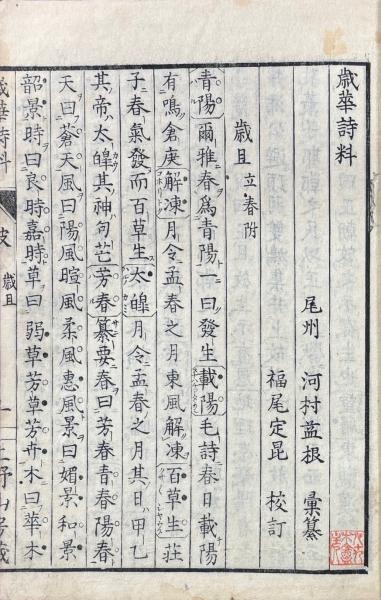 歳華詩料
尾州 河村益根 彙纂
福尾定昆 校訂
歳旦 立春附
青陽 爾雅春為青陽一曰發生 載陽 毛詩春日載陽
有鳴倉庚 解凍 月令孟春之月東風解凍 百草生 莊
子春氣發而百草生 太皥 月令孟春之月其日甲乙
其帝太皥其神句芒 芳春 纂要春曰芳春青春陽春
天曰蒼天風曰陽風暄風柔風惠風景曰媚景和景
韶景時曰良時嘉時草曰 弱草芳草芳卉木曰華木
歳華詩料
歳旦
一